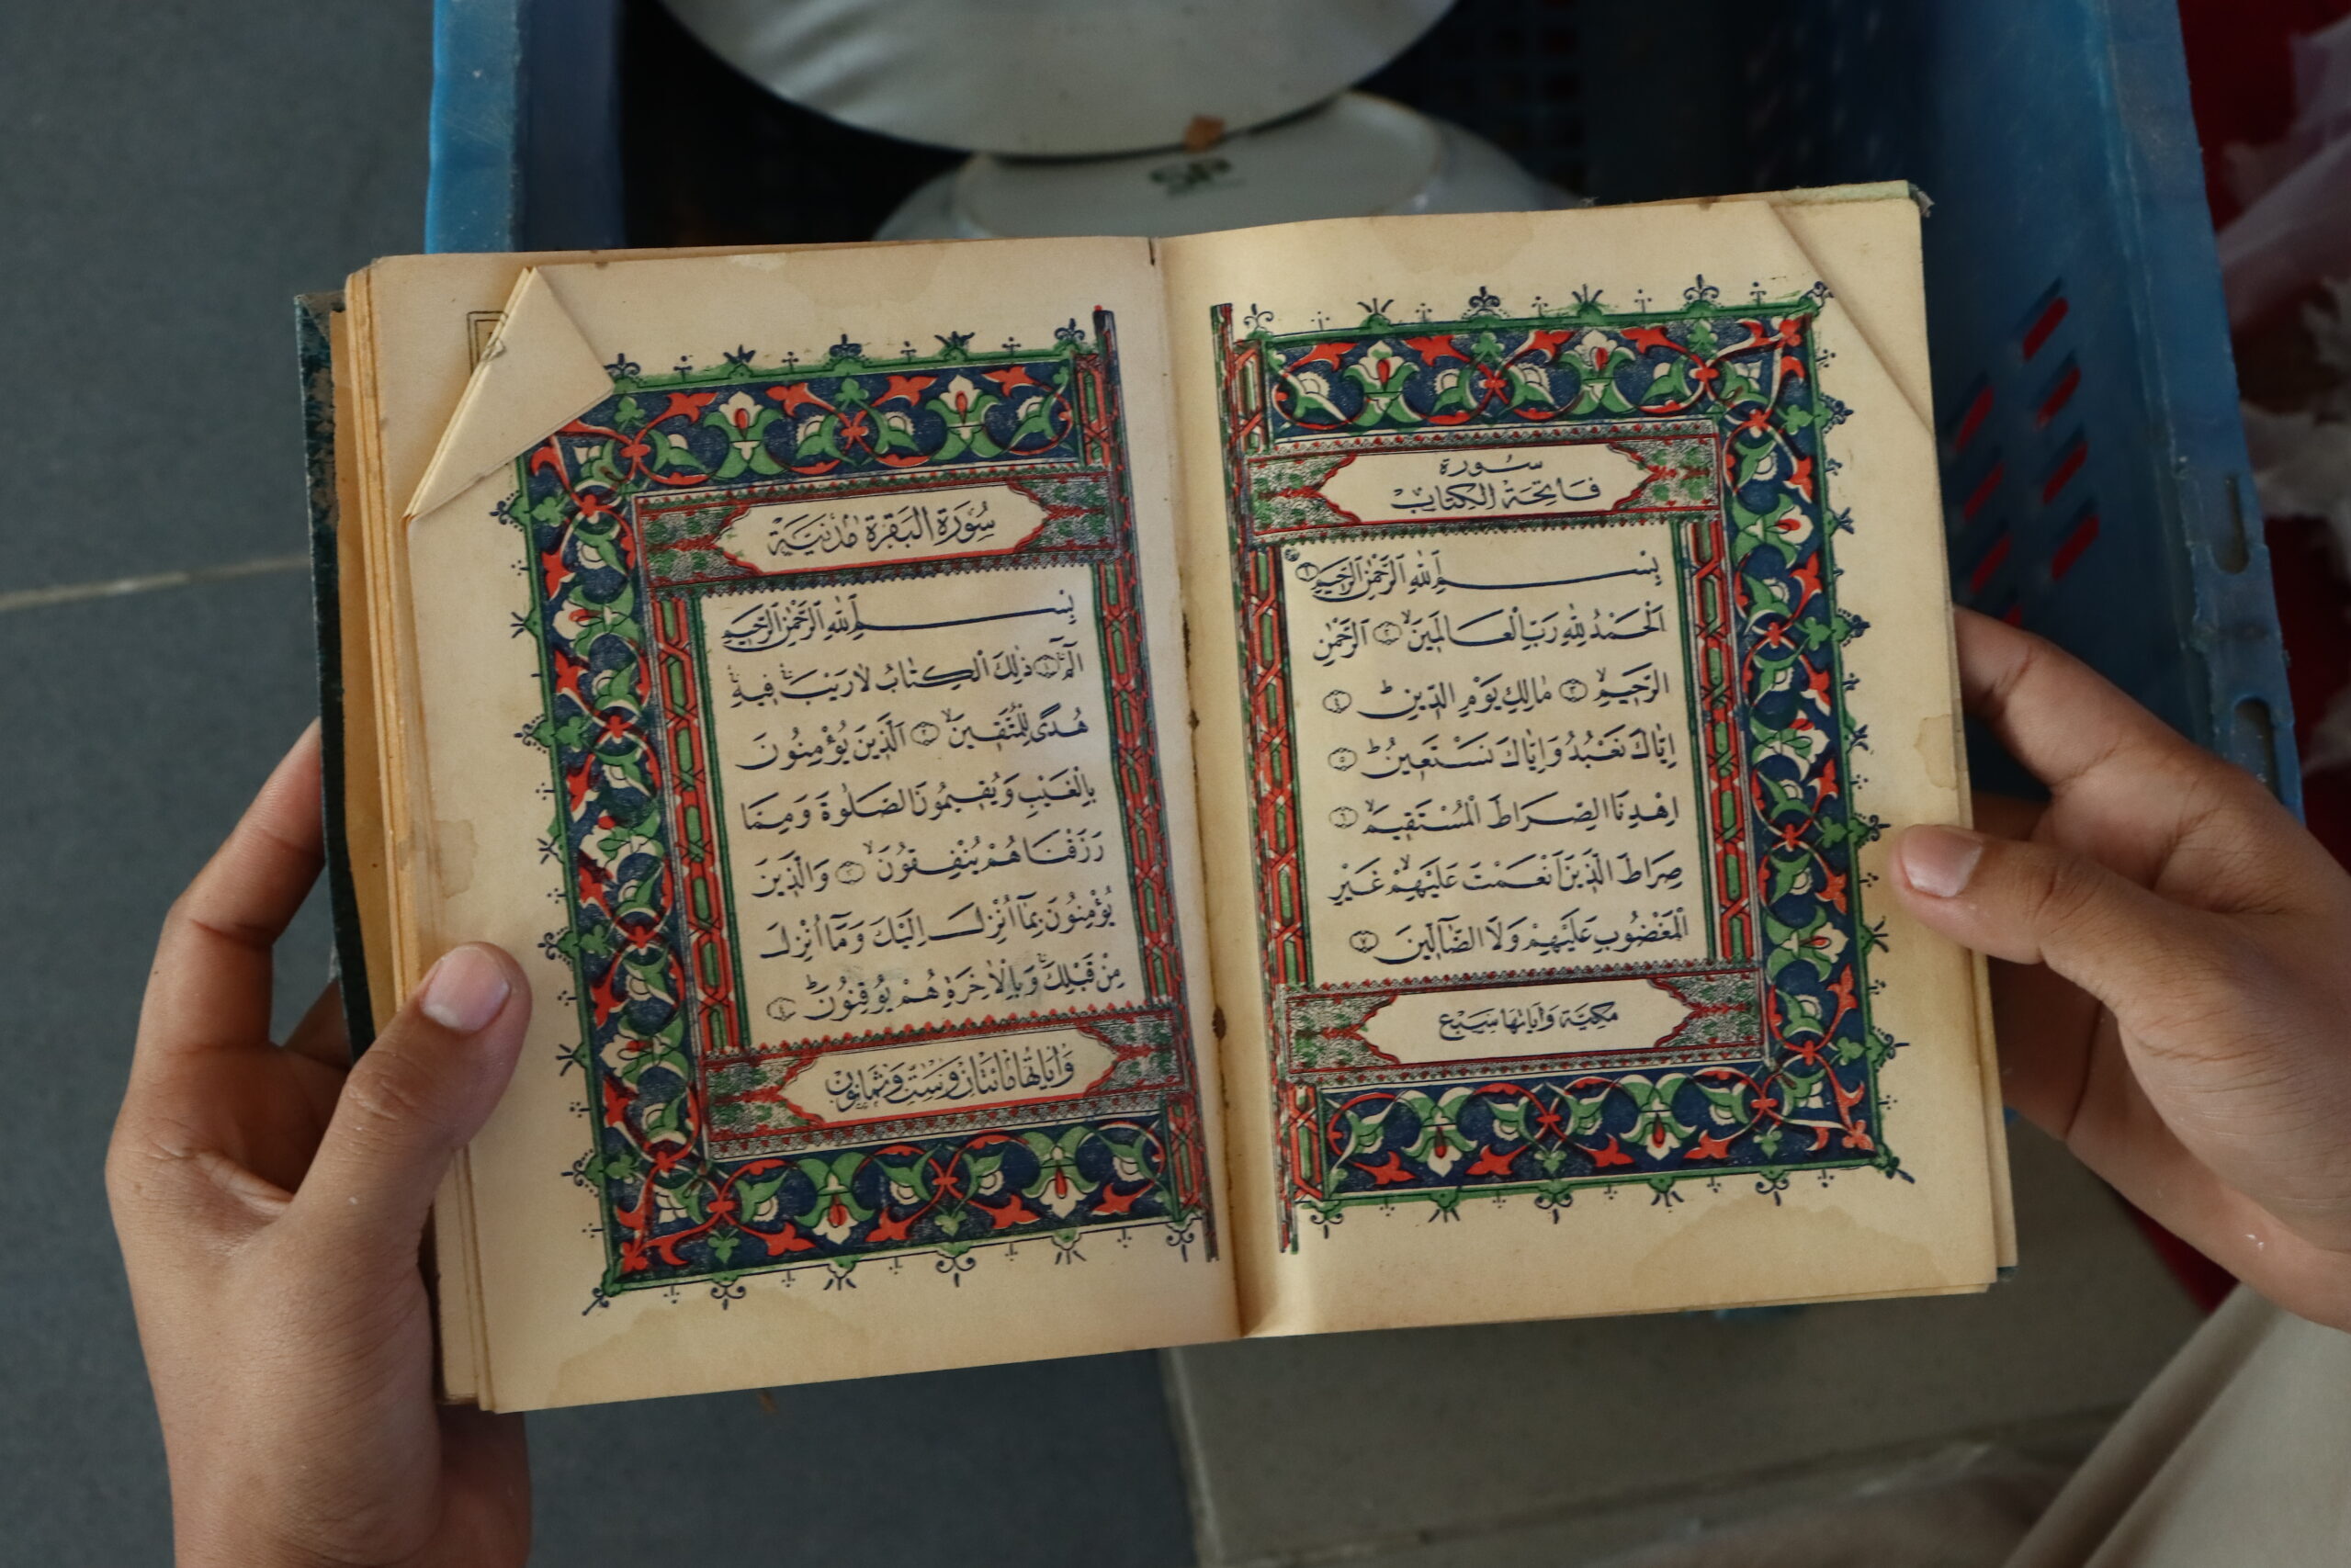 سورة
فاتحة الكتاب
بِسْمِ ٱللّٰهِ ٱلرَّحْمٰنِ ٱلرَّحِيمِ ١
اَلْحَمْدُ لِلّٰهِ رَبِّ الْعَالَمِينَۙ ٢ اَلرَّحْمٰنِ
الرَّحِيمِۙ ٣ مَالِكِ يَوْمِ الدِّينِۜ ٤
اِيَّاكَ نَعْبُدُ وَاِيَّاكَ نَسْتَعِينُۜ ٥
اِهْدِنَا الصِّرَاطَ الْمُسْتَقِيمَۙ ٦
صِرَاطَ الَّذِينَ اَنْعَمْتَ عَلَيْهِمْۙ غَيْرِ
الْمَغْضُوبِ عَلَيْهِمْ وَلَا الضَّٓالِّينَ ٧
مكيّة وَاٰياتها سَبْع
سُورَةُ الْبَقَرَة مَدَنِيَّة
بِسْمِ ٱللّٰهِ ٱلرَّحْمٰنِ ٱلرَّحِيمِ
الٓمٓۚ ١ ذٰلِكَ الْكِتَابُ لَا رَيْبَۚ فِيهِۚ
هُدًى لِلْمُتَّقِينَۙ ٢ اَلَّذِينَ يُؤْمِنُونَ
بِالْغَيْبِ وَيُقِيمُونَ الصَّلٰوةَ وَمِمَّا
رَزَقْنَاهُمْ يُنْفِقُونَۙ ٣ وَالَّذِينَ
يُؤْمِنُونَ بِمَٓا اُنْزِلَ اِلَيْكَ وَمَٓا اُنْزِلَ
مِنْ قَبْلِكَۚ وَبِالْاٰخِرَةِ هُمْ يُوقِنُونَۜ ٤
وَاٰيَاتُهَا مِائَتَانِ وَسِتٌّ وَثَمَانُونَ
SP